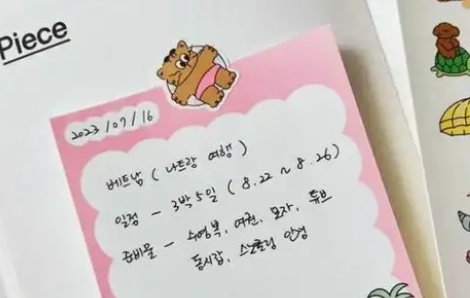 Piece
2023 / 07 / 16
베트남 ( 나트랑 여행 )
일정 - 3박 5일 ( 8.22 ~ 8.26 )
준비물 - 수영복, 여권, 모자, 튜브
동시갑, 스노쿨링 안경